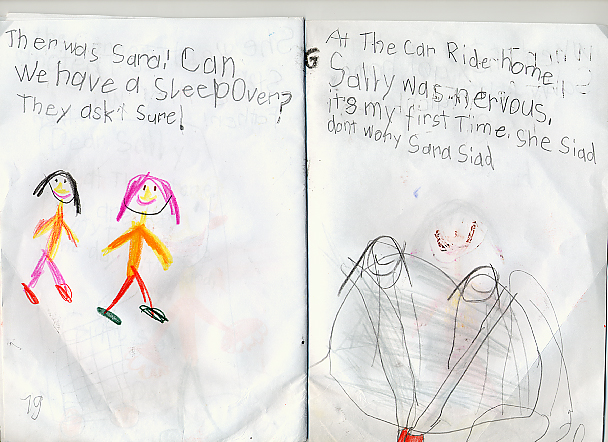 Ther was Sara! Can
We have a SleepOver?
They ask! Sure!
19
At The Car Ride home
Sally was nervous,
it's my first Time. She Siad
dont wory Sara Siad